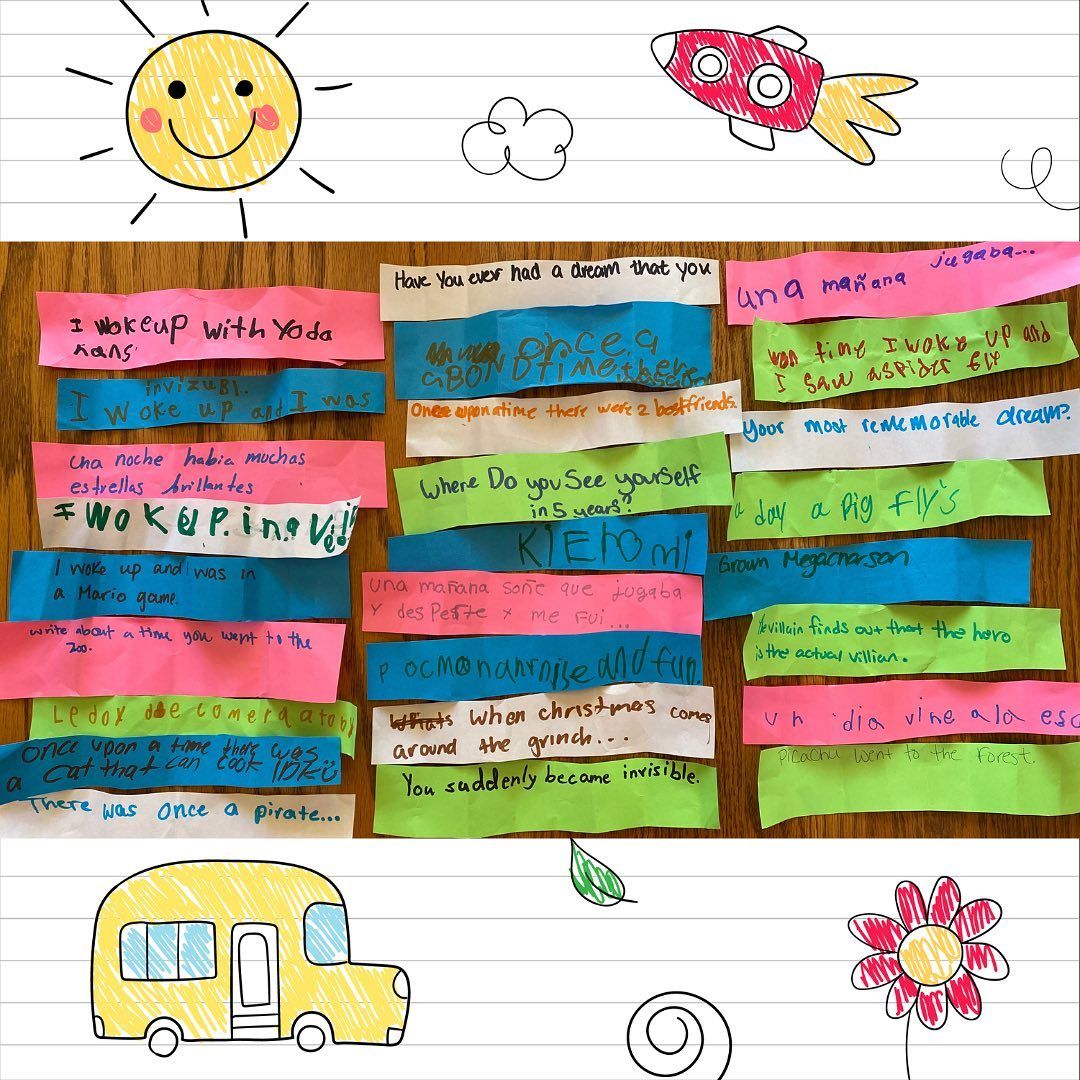 I wokeup with Yoda
hans
invizubl.
I woke up and I was
una noche habia muchas
estrellas brillantes
I WOKE UP. in a
I woke up and I was in
a Mario game.
write about a time you went to the
zoo.
once upon a time there was
a cat that can cook IDK
There was once a pirate...
Have You ever had a dream that you
once a
aBONDtime there
Once upon a time there were 2 bestfriends.
Where Do you See yourself
in 5 years?
una mañana soñe que jugaba
y y me Fui...
and fun
When christmas comes
around the grinch...
You suddenly became invisible.
jugaba...
una mañana
won time I woke up and
I saw a spider
your most rememorable dream?
a day a Pig Fly's
Grown
the villain finds out that the hero
is the actual villian.
un dia vine a la esc
Picachu went to the Forest.